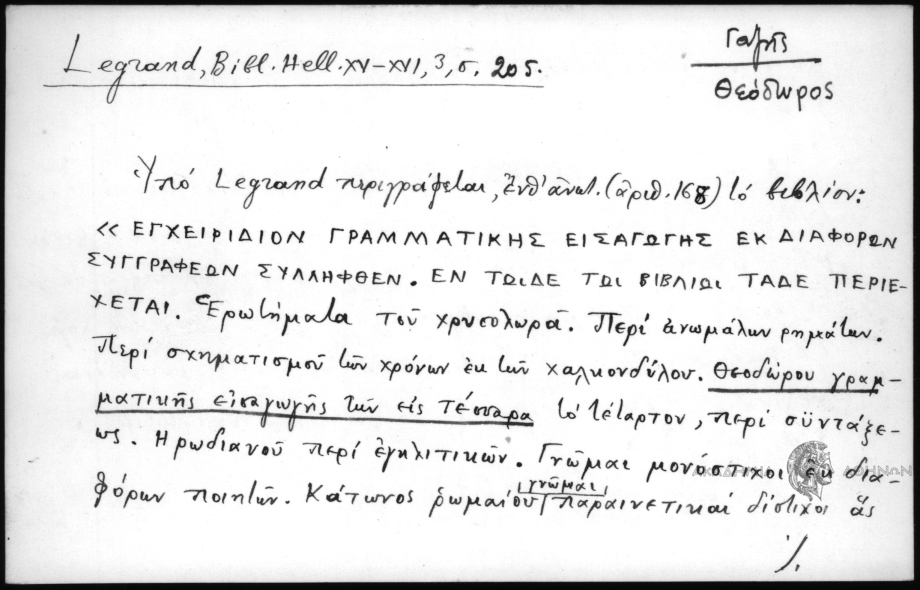 Legrand, Bibl. Hell. XV–XVI, 3, σ. 205.
Γαζῆς
Θεόδωρος
Ὑπό Legrand περιγράφεται, ἔνθ' ἀνωτ. (ἀριθ. 168) τό βιβλίον:
« ΕΓΧΕΙΡΙΔΙΟΝ ΓΡΑΜΜΑΤΙΚΗΣ ΕΙΣΑΓΩΓΗΣ ΕΚ ΔΙΑΦΟΡΩΝ
ΣΥΓΓΡΑΦΕΩΝ ΣΥΛΛΗΦΘΕΝ. ΕΝ ΤΩΙΔΕ ΤΩΙ ΒΙΒΛΙΩΙ ΤΑΔΕ ΠΕΡΙΕ-
ΧΕΤΑΙ. Ἐρωτήματα τοῦ χρυσολωρᾶ. Περί ἀνωμάλων ρημάτων.
Περί σχηματισμοῦ τῶν χρόνων ἐκ τῶν χαλκονδύλου. Θεοδώρου γραμ-
ματικῆς εἰσαγωγῆς τῶν εἰς τέσσαρα τό τέταρτον, περί σϋντάξε-
ως. Ηρωδιανοῦ περί ἐγκλιτικῶν. Γνῶμαι μονόστιχοι ἐκ δια-
ΑΚΑΔΗΜΙΑ ΑΘΗΝΩΝ
φόρων ποιητῶν. Κάτωνος ῥωμαίου |γνῶμαι| παραινετικαί δίστιχοι ἅς
./.